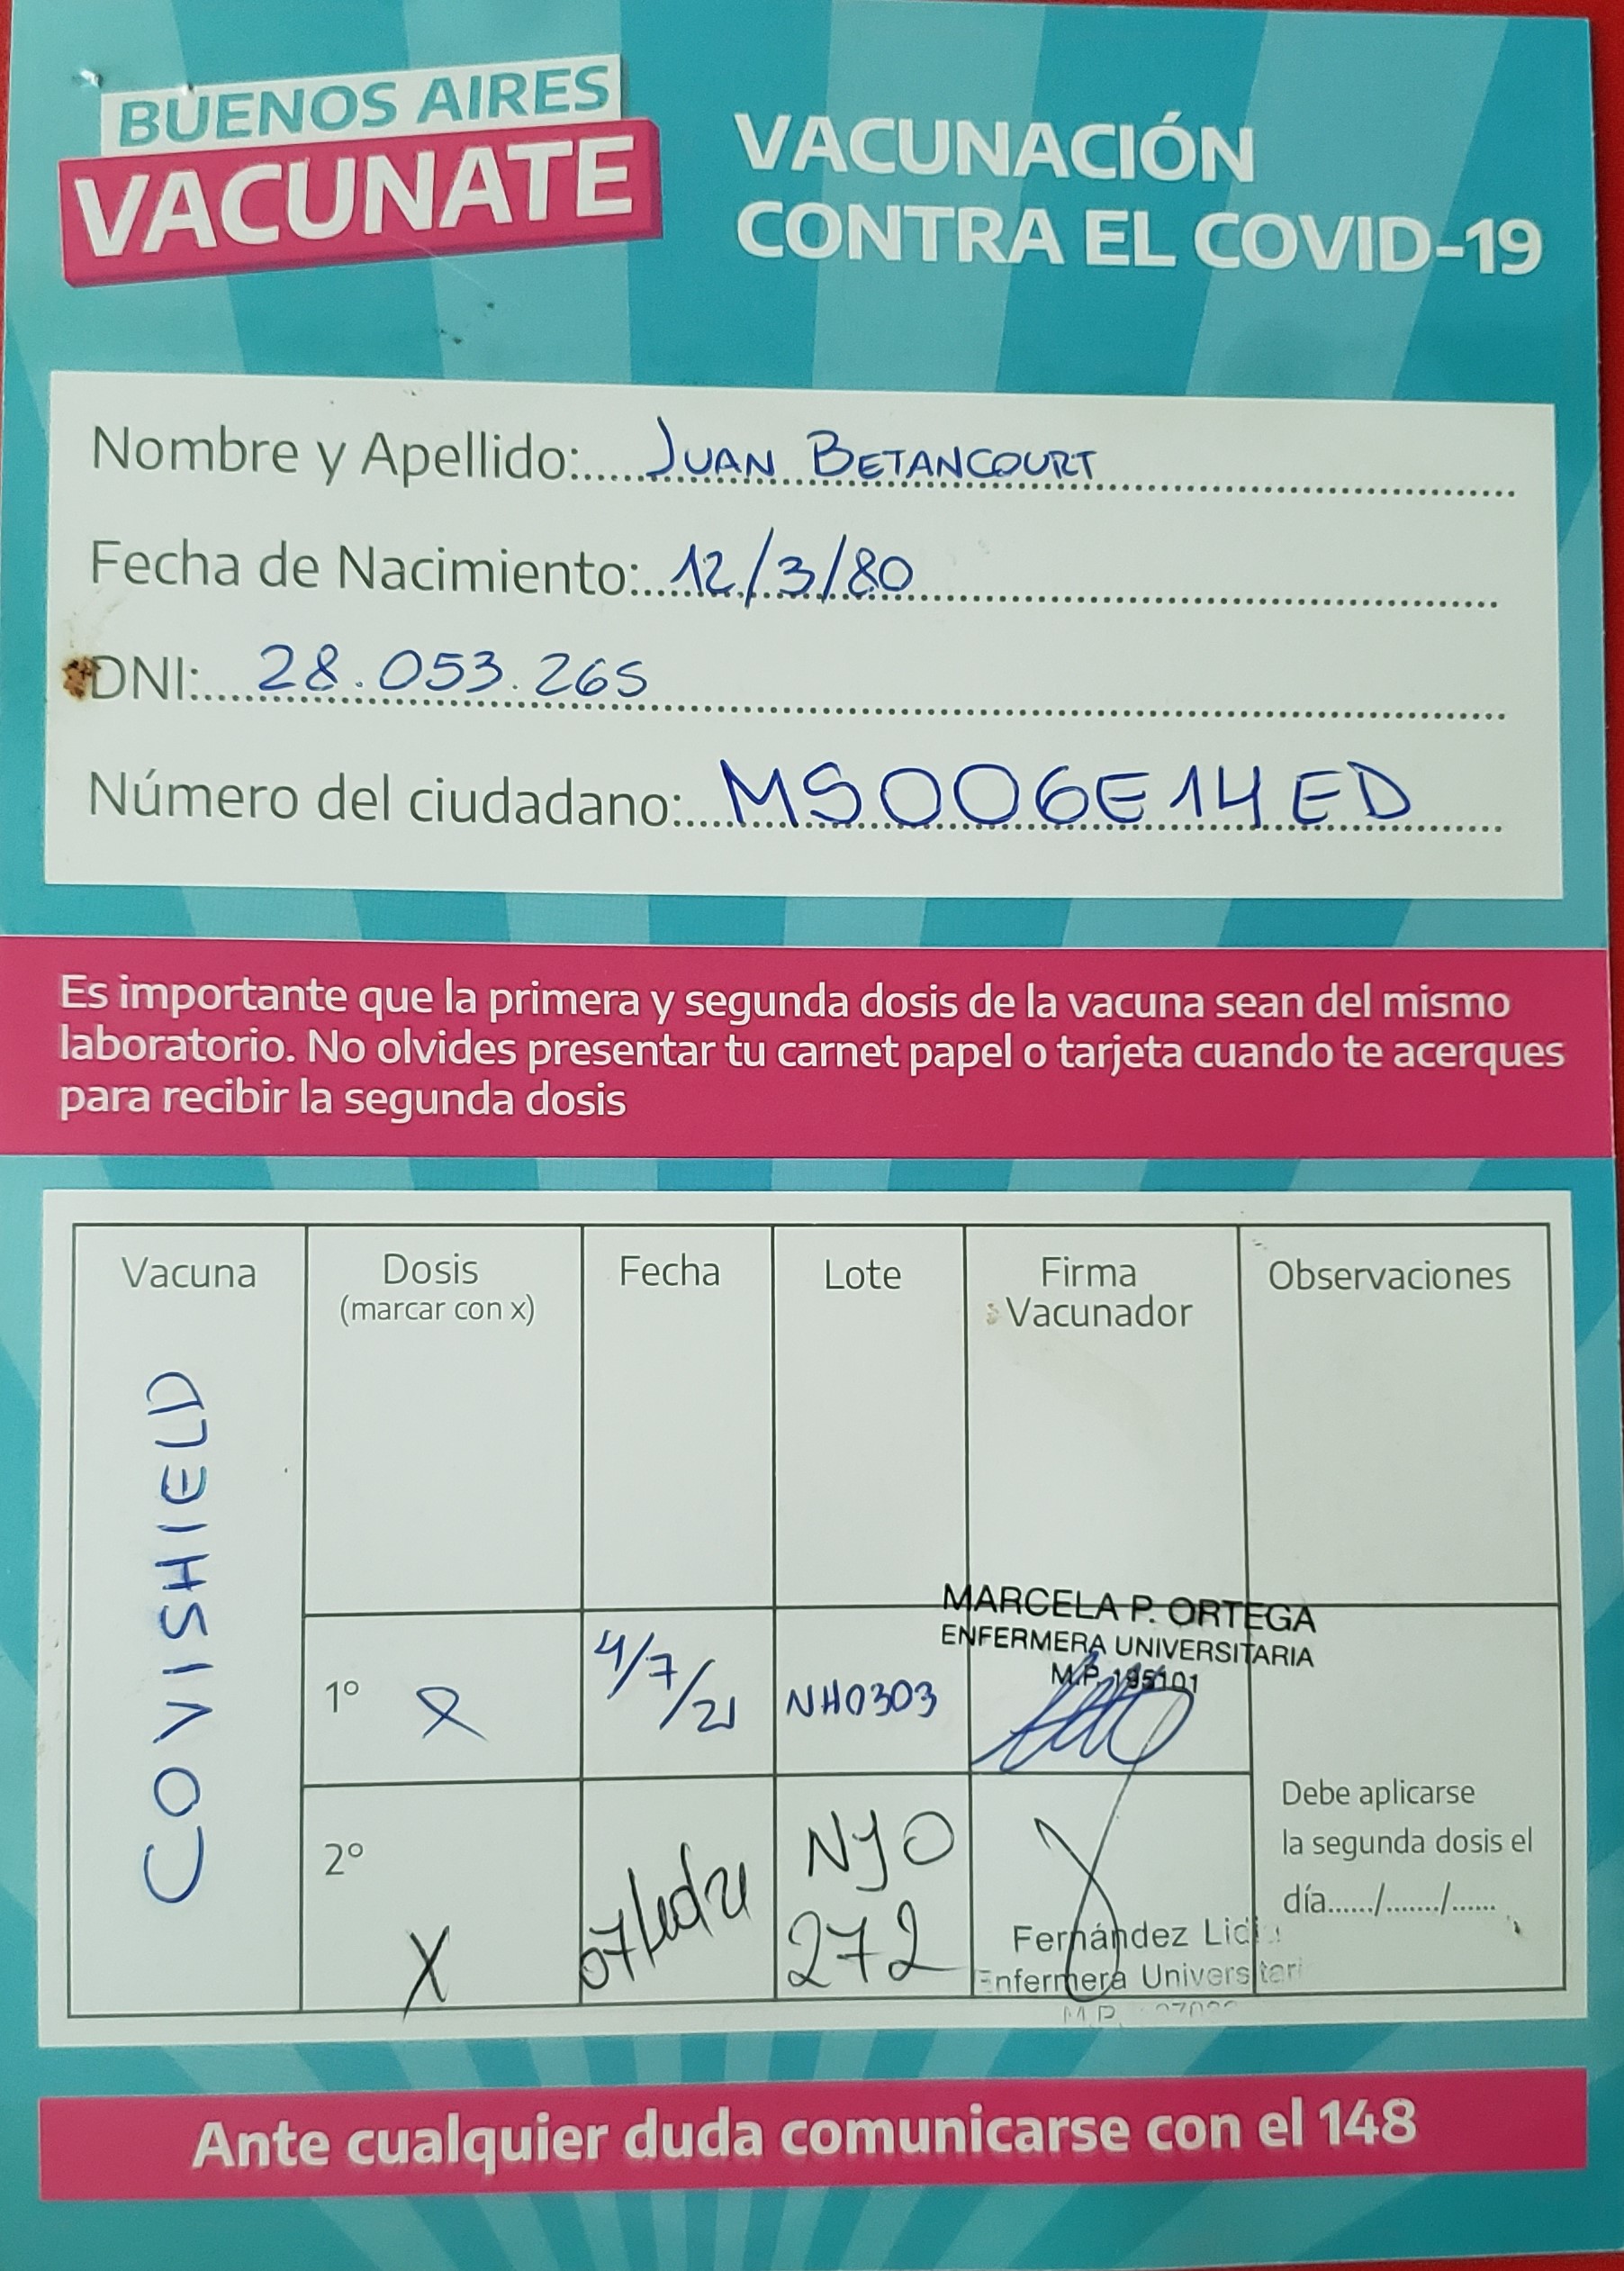 BUENOS AIRES
VACUNATE
VACUNACIÓN
CONTRA EL COVID-19
Nombre y Apellido:.....JUAN BETANCOURT
Fecha de Nacimiento:..12/3/80
DNI:....28.053.265
Número del ciudadano:...MS006E14ED
Es importante que la primera y segunda dosis de la vacuna sean del mismo
laboratorio. No olvides presentar tu carnet papel o tarjeta cuando te acerques
para recibir la segunda dosis
Vacuna
Dosis
(marcar con x)
Fecha
Lote
Firma
Vacunador
Observaciones
COVISHIELD
1º x
4/7/21
NH0303
MARCELA P. ORTEGA
ENFERMERA UNIVERSITARIA
M.P. 195101
2º
X
NJO
272
Fernández
Enfermera
M.P.
Debe aplicarse
la segunda dosis el
día....../......./......
Ante cualquier duda comunicarse con el 148